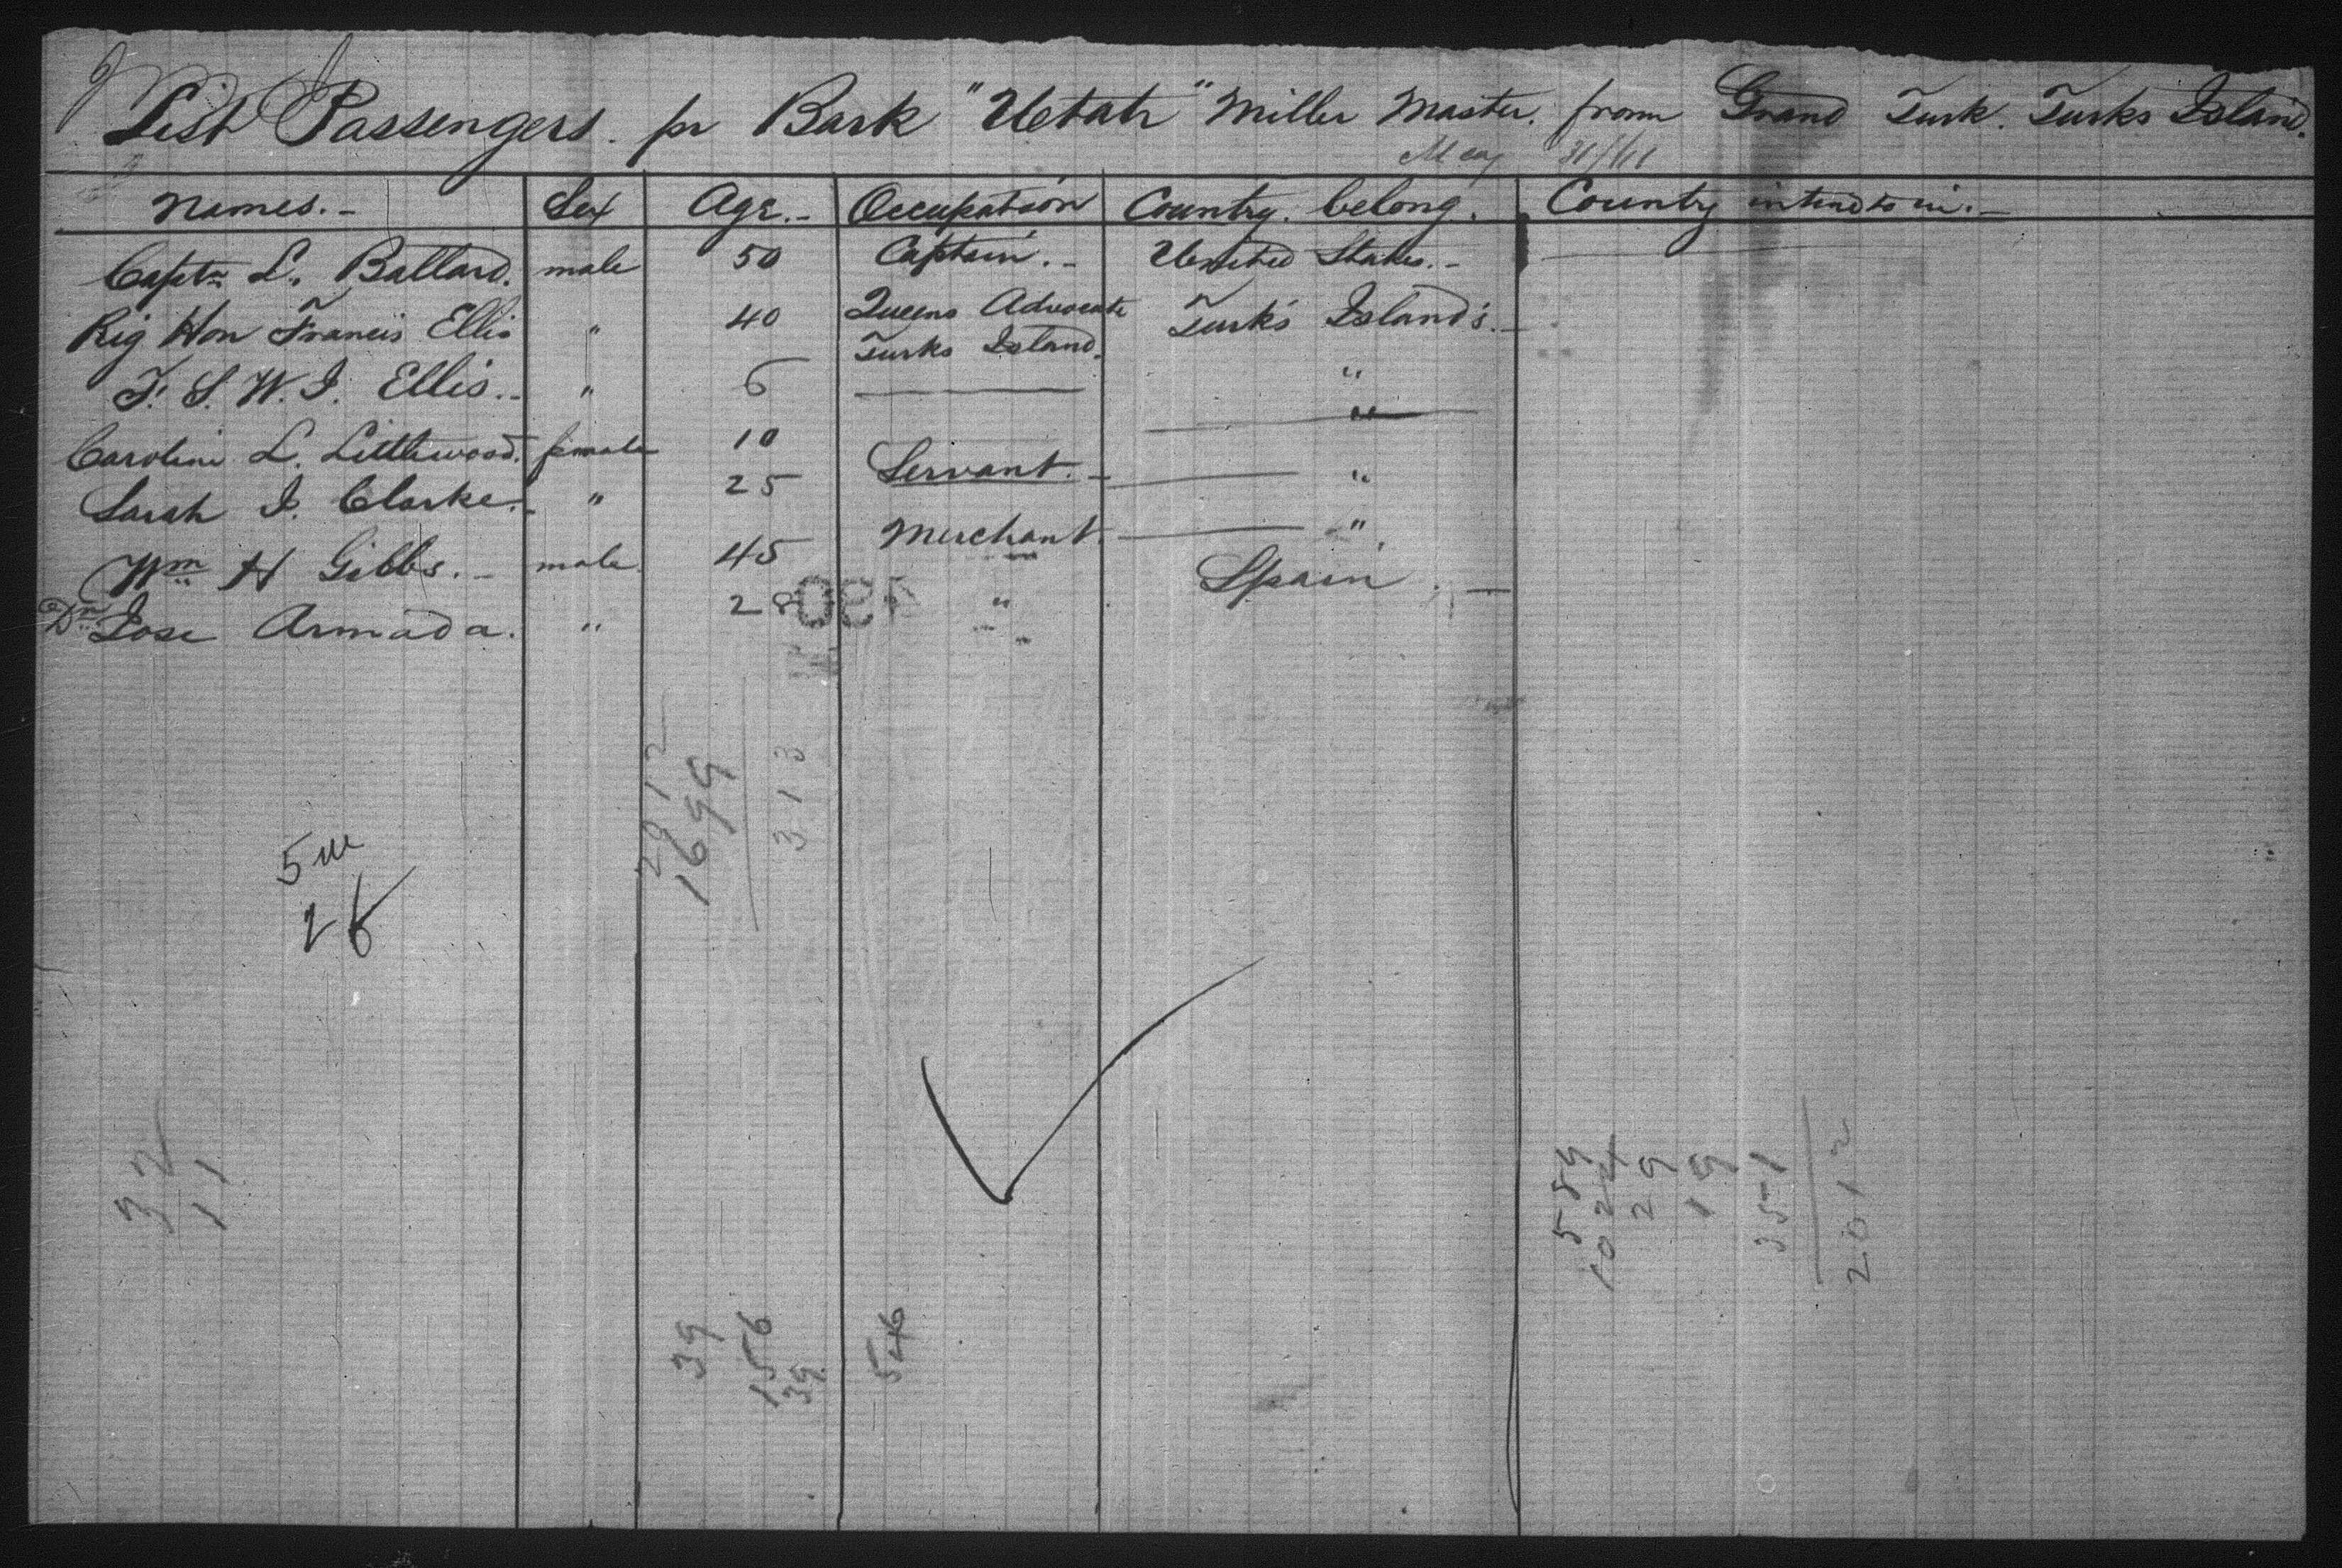 List Passengers. pr Bark "Uetatr" Miller Master. from Grand Turk. Turks Island.
May 31/61
Names.- Sex Age.- Occupation Country. belong. Country intends in.-
Captn L. Ballard. male 50 Captain.- United States.-
Rig Hon Francis Ellis " 40 Queens Advocate Turks Island. Turk's Island's.-
F. S. W. J. Ellis.- " 6 "
Caroline L. Littlewood. female 10 "
Sarah J. Clarke.- " 25 Servant.- "
Wm H Gibbs.- male. 45 Merchant. "
Dn Jose Armada. " 28 " Spain.-
2912
1699
313
5m
26
32
11
39
156
39
546
589
1024
29
19
351
2012